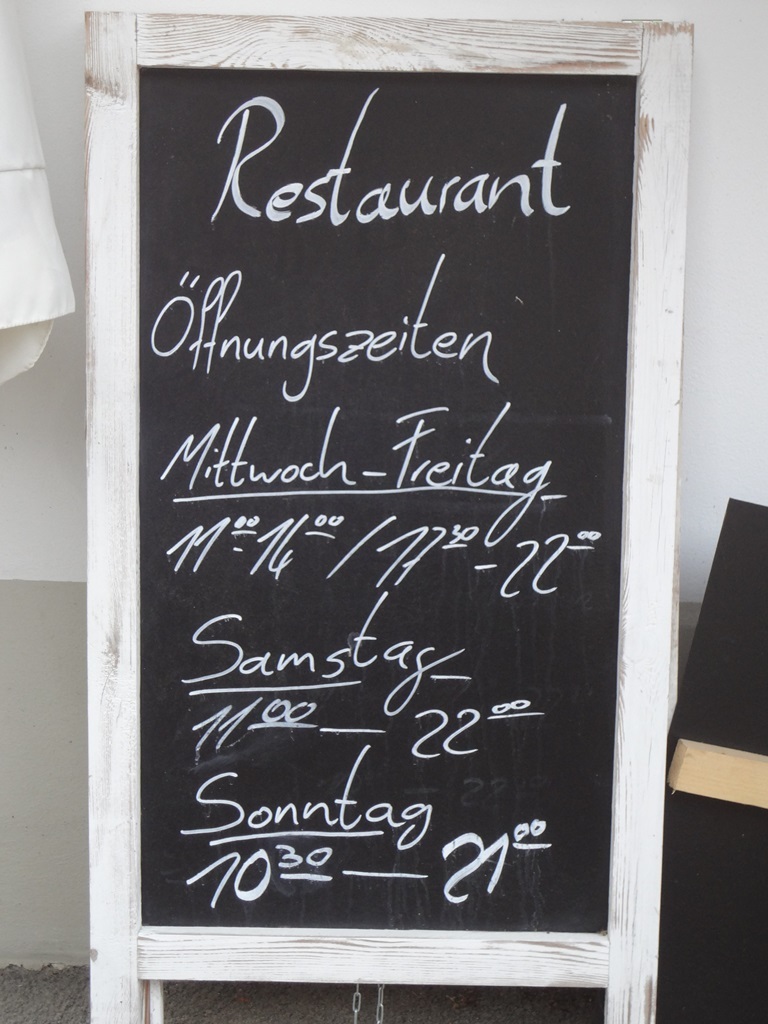 Restaurant
Öffnungszeiten
Mittwoch-Freitag
11⁰⁰-14⁰⁰ / 17³⁰ - 22⁰⁰
Samstag
11⁰⁰ — 22⁰⁰
Sonntag
10³⁰ — 21⁰⁰